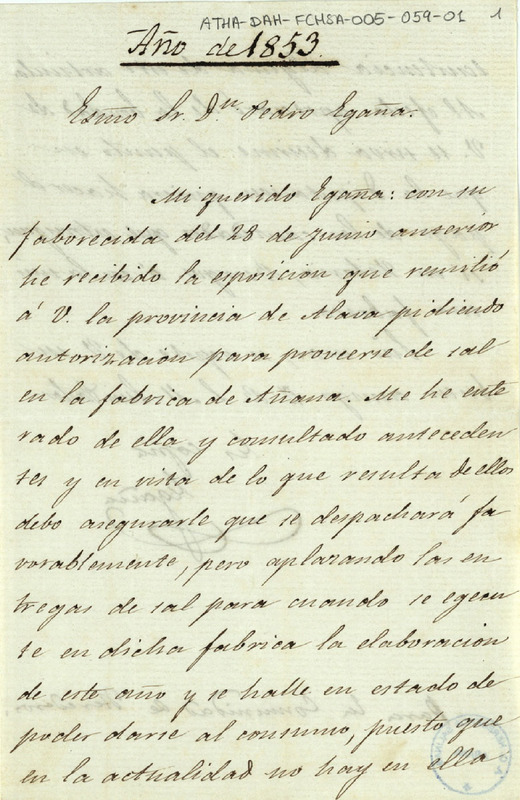 ATHA-DAH-FCHSA-005-059-01
1
Año de 1853
Esmo Sr. Dn Pedro Egaña.
Mi querido Egaña: con su
faborecida del 28 de Junio anterior
he recibido la esposicion que remitió
á V. la provincia de Alava pidiendo
autorizacion para proveerse de sal
en la fabrica de Añana. Me he ente
rado de ella y consultado anteceden
tes y en vista de lo que resulta de ellos
debo asegurarle que se despachará fa
vorablemente, pero aplazando las en
tregas de sal para cuando se egecu
te en dicha fabrica la elaboracion
de este año y se halle en estado de
poder darse al consumo, puesto que
en la actualidad no hay en ella